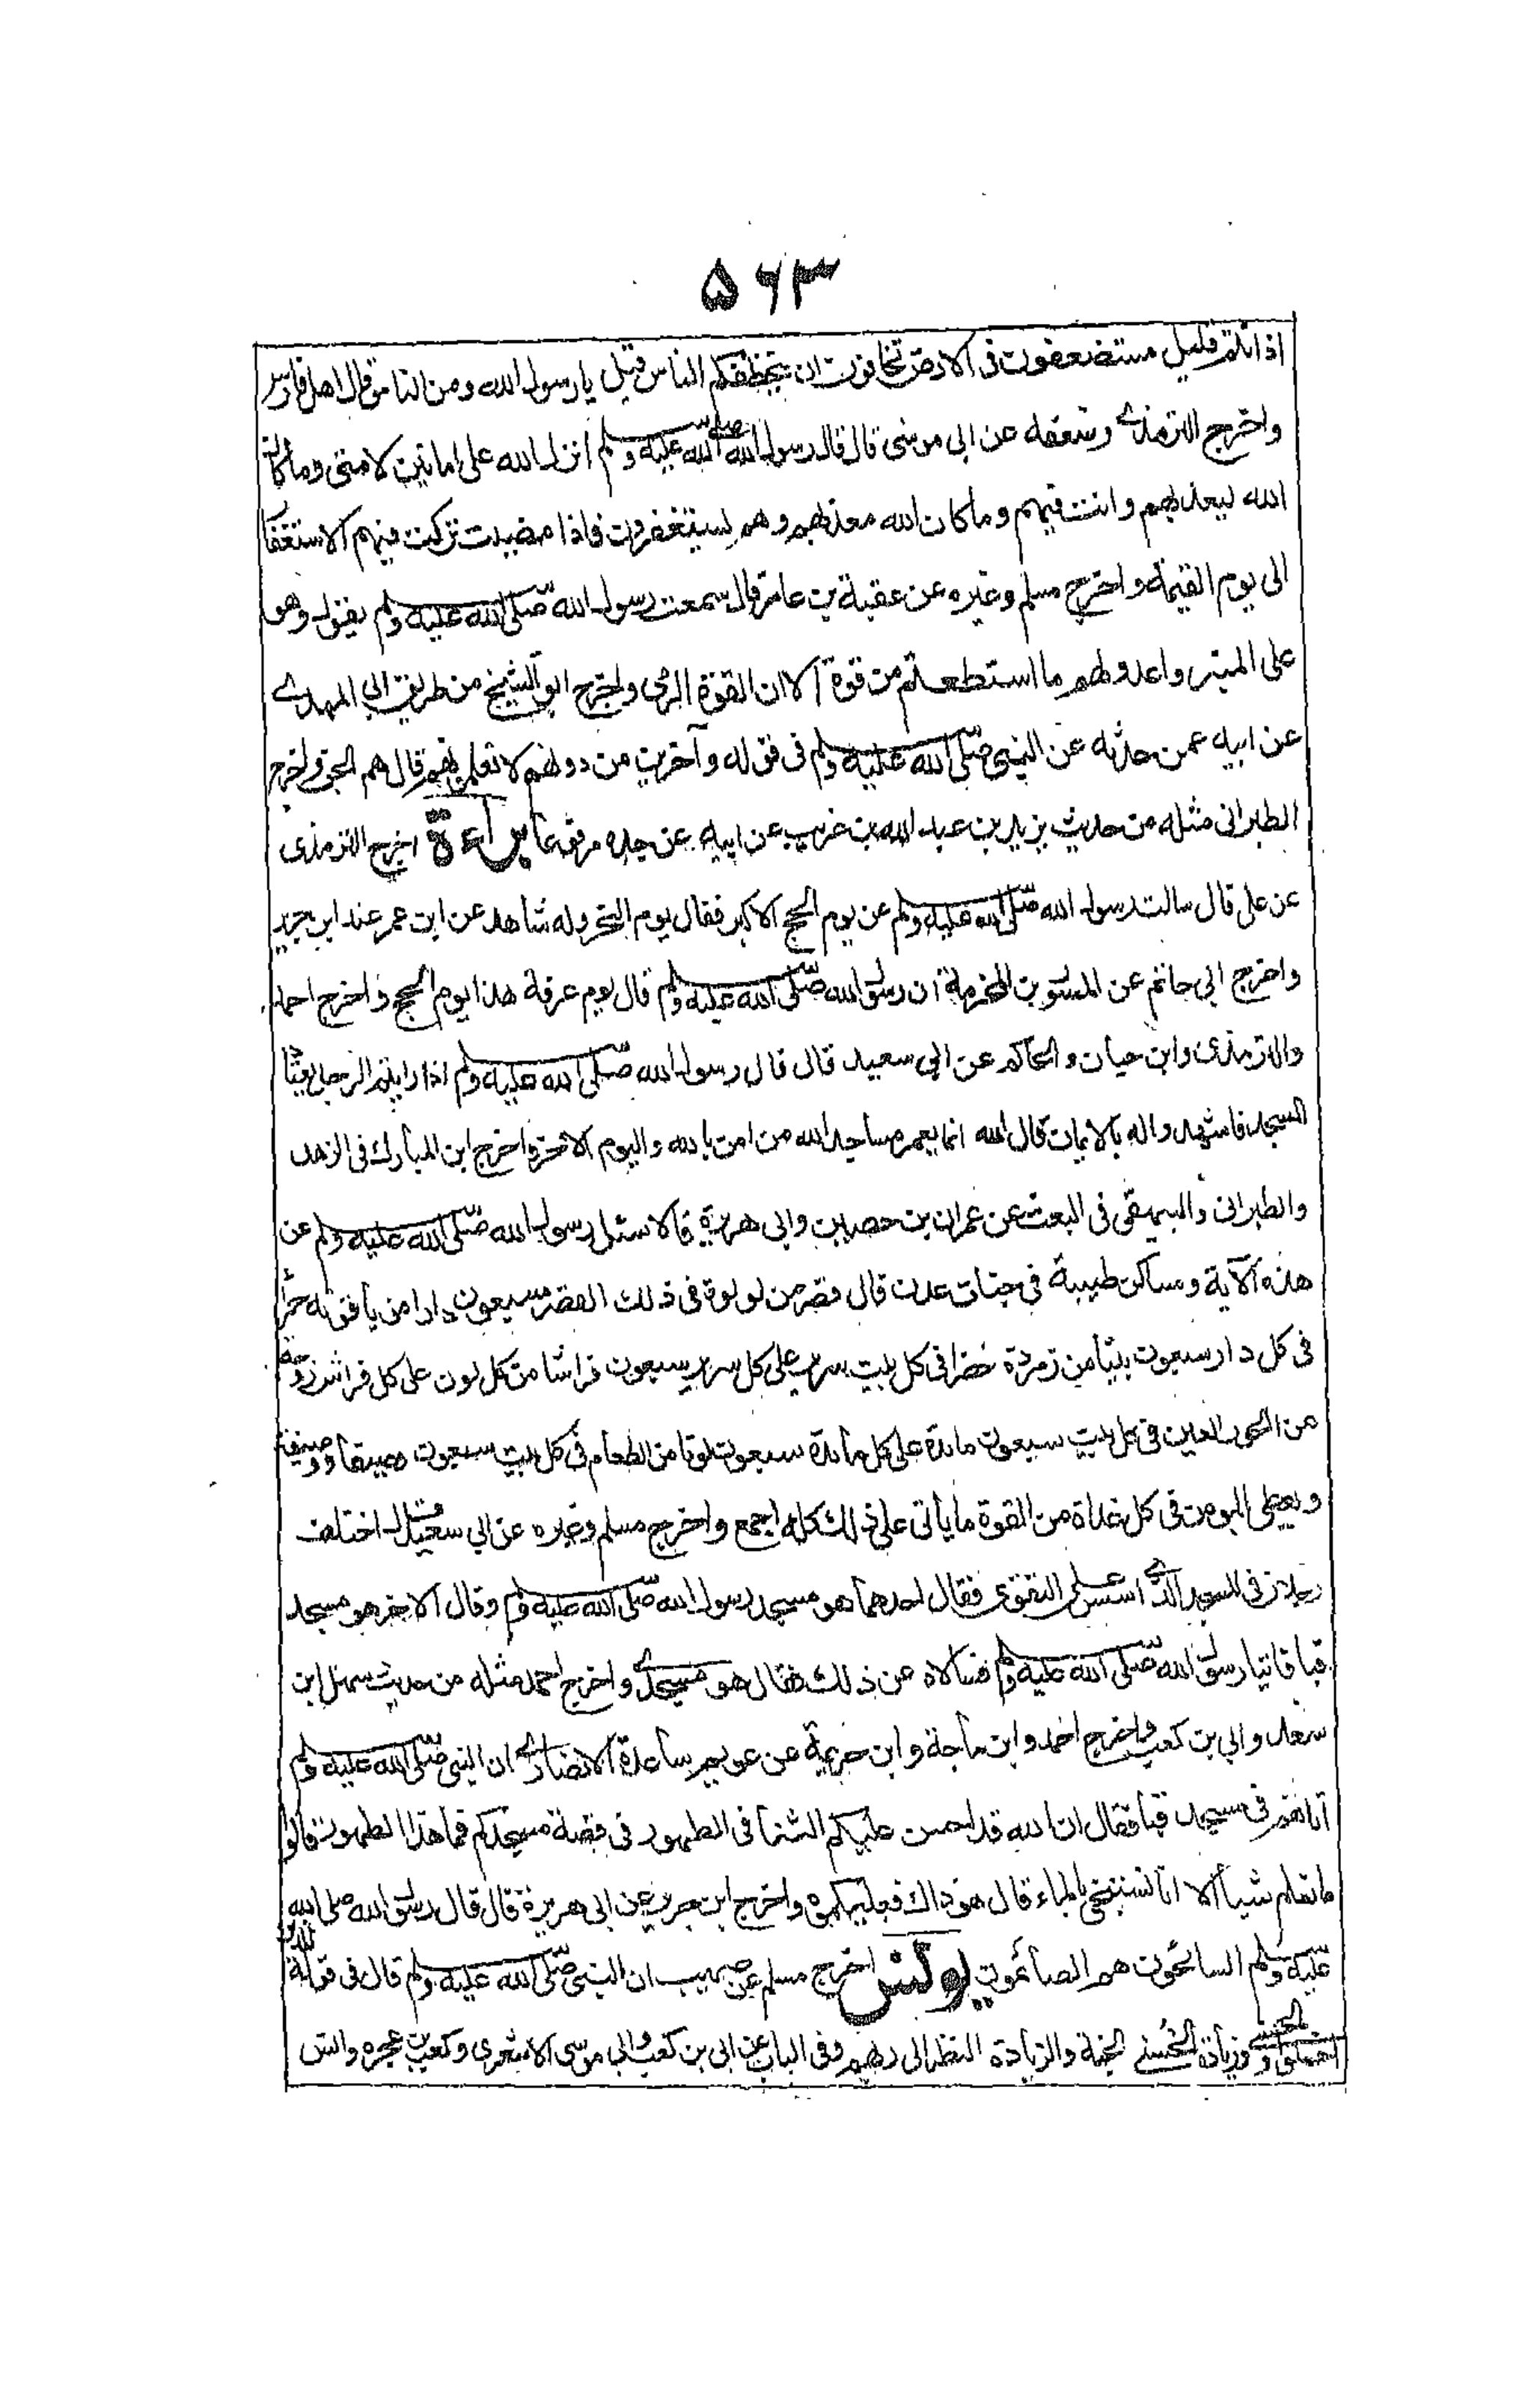 ۵۶۳
اذ انتم قليل مستضعفون فى الارض تخافون ان يتخطفكم الناس قيل يا رسول الله ومن الناس قال اهل فارس
واخرج الترمذى وضعفه عن ابى موسى قال قال رسول الله صلى الله عليه وسلم انزل الله على امانين لامتى وما كان
الله ليعذبهم وانت فيهم وما كان الله معذبهم وهم يستغفرون فاذا مضيت تركت فيهم الاستغفا
الى يوم القيمة واخرج مسلم وغيره عن عقبة بن عامر قال سمعت رسول الله صلى الله عليه وسلم يقول وهو
على المنبر واعدوا لهم ما استطعتم من قوة الا ان القوة الرمى واخرج ابو الشيخ من طريق ابى المهدى
عن ابيه عمن حدثه عن النبى صلى الله عليه وسلم فى قوله وآخرين من دونهم لا تعلمونهم قال هم الجن واخرج
الطبرانى مثله من حديث يزيد بن عبد الله بن غريب عن ابيه عن جده مرفوعا براءة اخرج الترمذى
عن على قال سالت رسول الله صلى الله عليه وسلم عن يوم الحج الاكبر فقال يوم النحر وله شاهد عن ابن عمر عند ابن جرير
واخرج ابى حاتم عن المسور بن المخرمة ان رسول الله صلى الله عليه وسلم قال يوم عرفة هذا يوم الحج واخرج احمد
والترمذى وابن حبان والحاكم عن ابى سعيد قال قال رسول الله صلى الله عليه وسلم اذا رايتم الرجل يعتاد
المسجد فاشهدوا له بالايمان قال الله انما يعمر مساجد الله من امن بالله واليوم الاخر واخرج ابن المبارك فى الزهد
والطبرانى والبيهقى فى البعث عن عمران بن حصين وابى هريرة قالا سئل رسول الله صلى الله عليه وسلم عن
هذه الآية ومساكن طيبة فى جنات عدن قال قصر من لولوة فى ذلك القصر سبعون دارا من ياقوتة حمرا
فى كل دار سبعون بيتا من زمردة خضرا فى كل بيت سرير على كل سرير سبعون فراشا من كل لون على كل فراش زوجة
من الحور العين فى كل بيت سبعون مائدة على كل مائدة سبعون لونا من الطعام فى كل بيت سبعون وصيفا ووصيفة
ويعطى المومن فى كل غداة من القوة ما يأتى على ذلك كله اجمع واخرج مسلم وغيره عن ابى سعيد قال اختلف
رجلان فى المسجد الذى اسس على التقوى فقال احدهما هو مسجد رسول الله صلى الله عليه وسلم وقال الاخر هو مسجد
قبا فاتيا رسول الله صلى الله عليه وسلم فسالاه عن ذلك فقال هو مسجدى واخرج احمد مثله من حديث سهل ابن
سعد وابى بن كعب واخرج احمد وابن ماجة وابن خزيمة عن عويم ساعدة الانصارى ان النبى صلى الله عليه وسلم
اتاهم فى مسجد قبا فقال ان الله قد احسن عليكم الثنا فى الطهور فى قصة مسجدكم فما هذا الطهور قالوا
ما نعلم شيأ الا انا نستنجى بالماء قال هو ذاك فعليكموه واخرج ابن جرير عن ابى هريرة قال قال رسول الله صلى الله
عليه وسلم السائحون هم الصائمون يونس اخرج مسلم عن صهيب ان النبى صلى الله عليه وسلم قال فى قوله للذين
احسنوا الحسنى وزيادة الحسنى الجنة والزيادة النظر الى ربهم وفى الباب عن ابى بن كعب وابى موسى الاشعرى وكعب بن عجره وانس